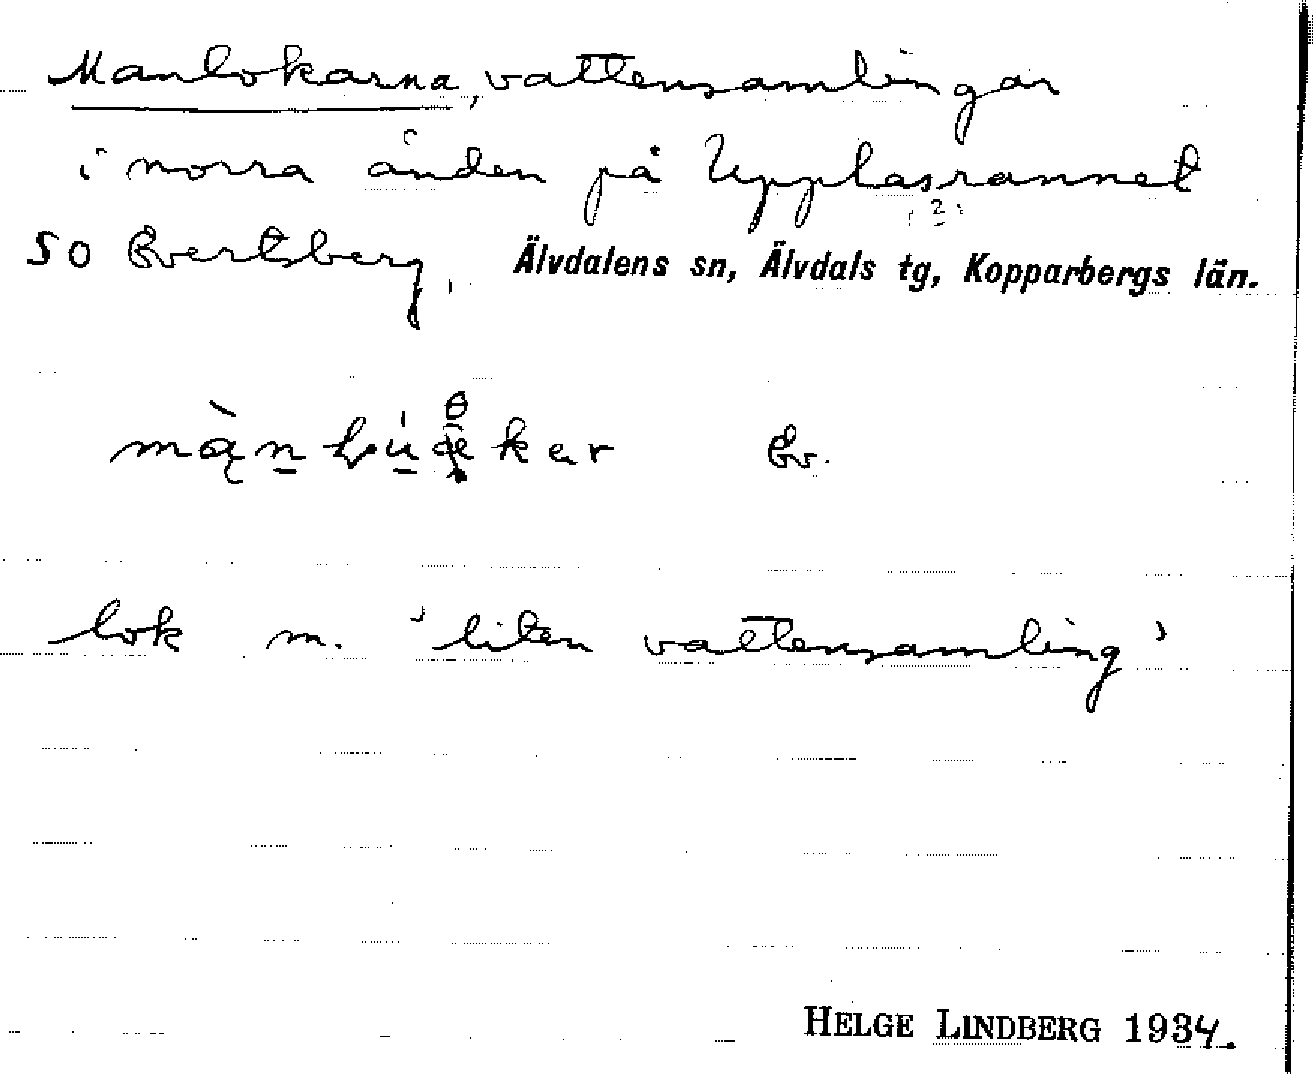 Manlokarna, vattensamlingar
i norra änden på Upplasrannet
SO Evertsberg. Älvdalens sn, Älvdals tg, Kopparbergs län.
Ev.
lok m. 'liten vattensamling'
HELGE LINDBERG 1934.